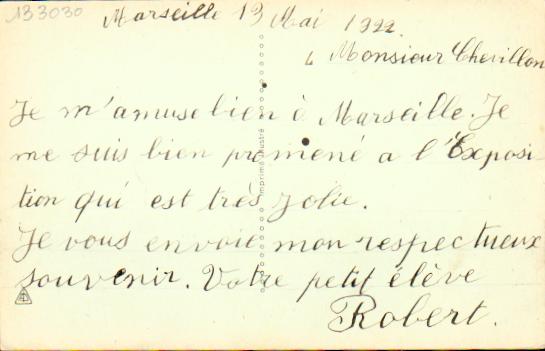 133030
Marseille 13 Mai 1922.
à Monsieur Chevillon
Je m'amuse bien à Marseille. Je
me suis bien promené a l'Exposi-
tion qui est très jolie.
Je vous envoit mon respectueux
souvenir. Votre petit élève
Robert.